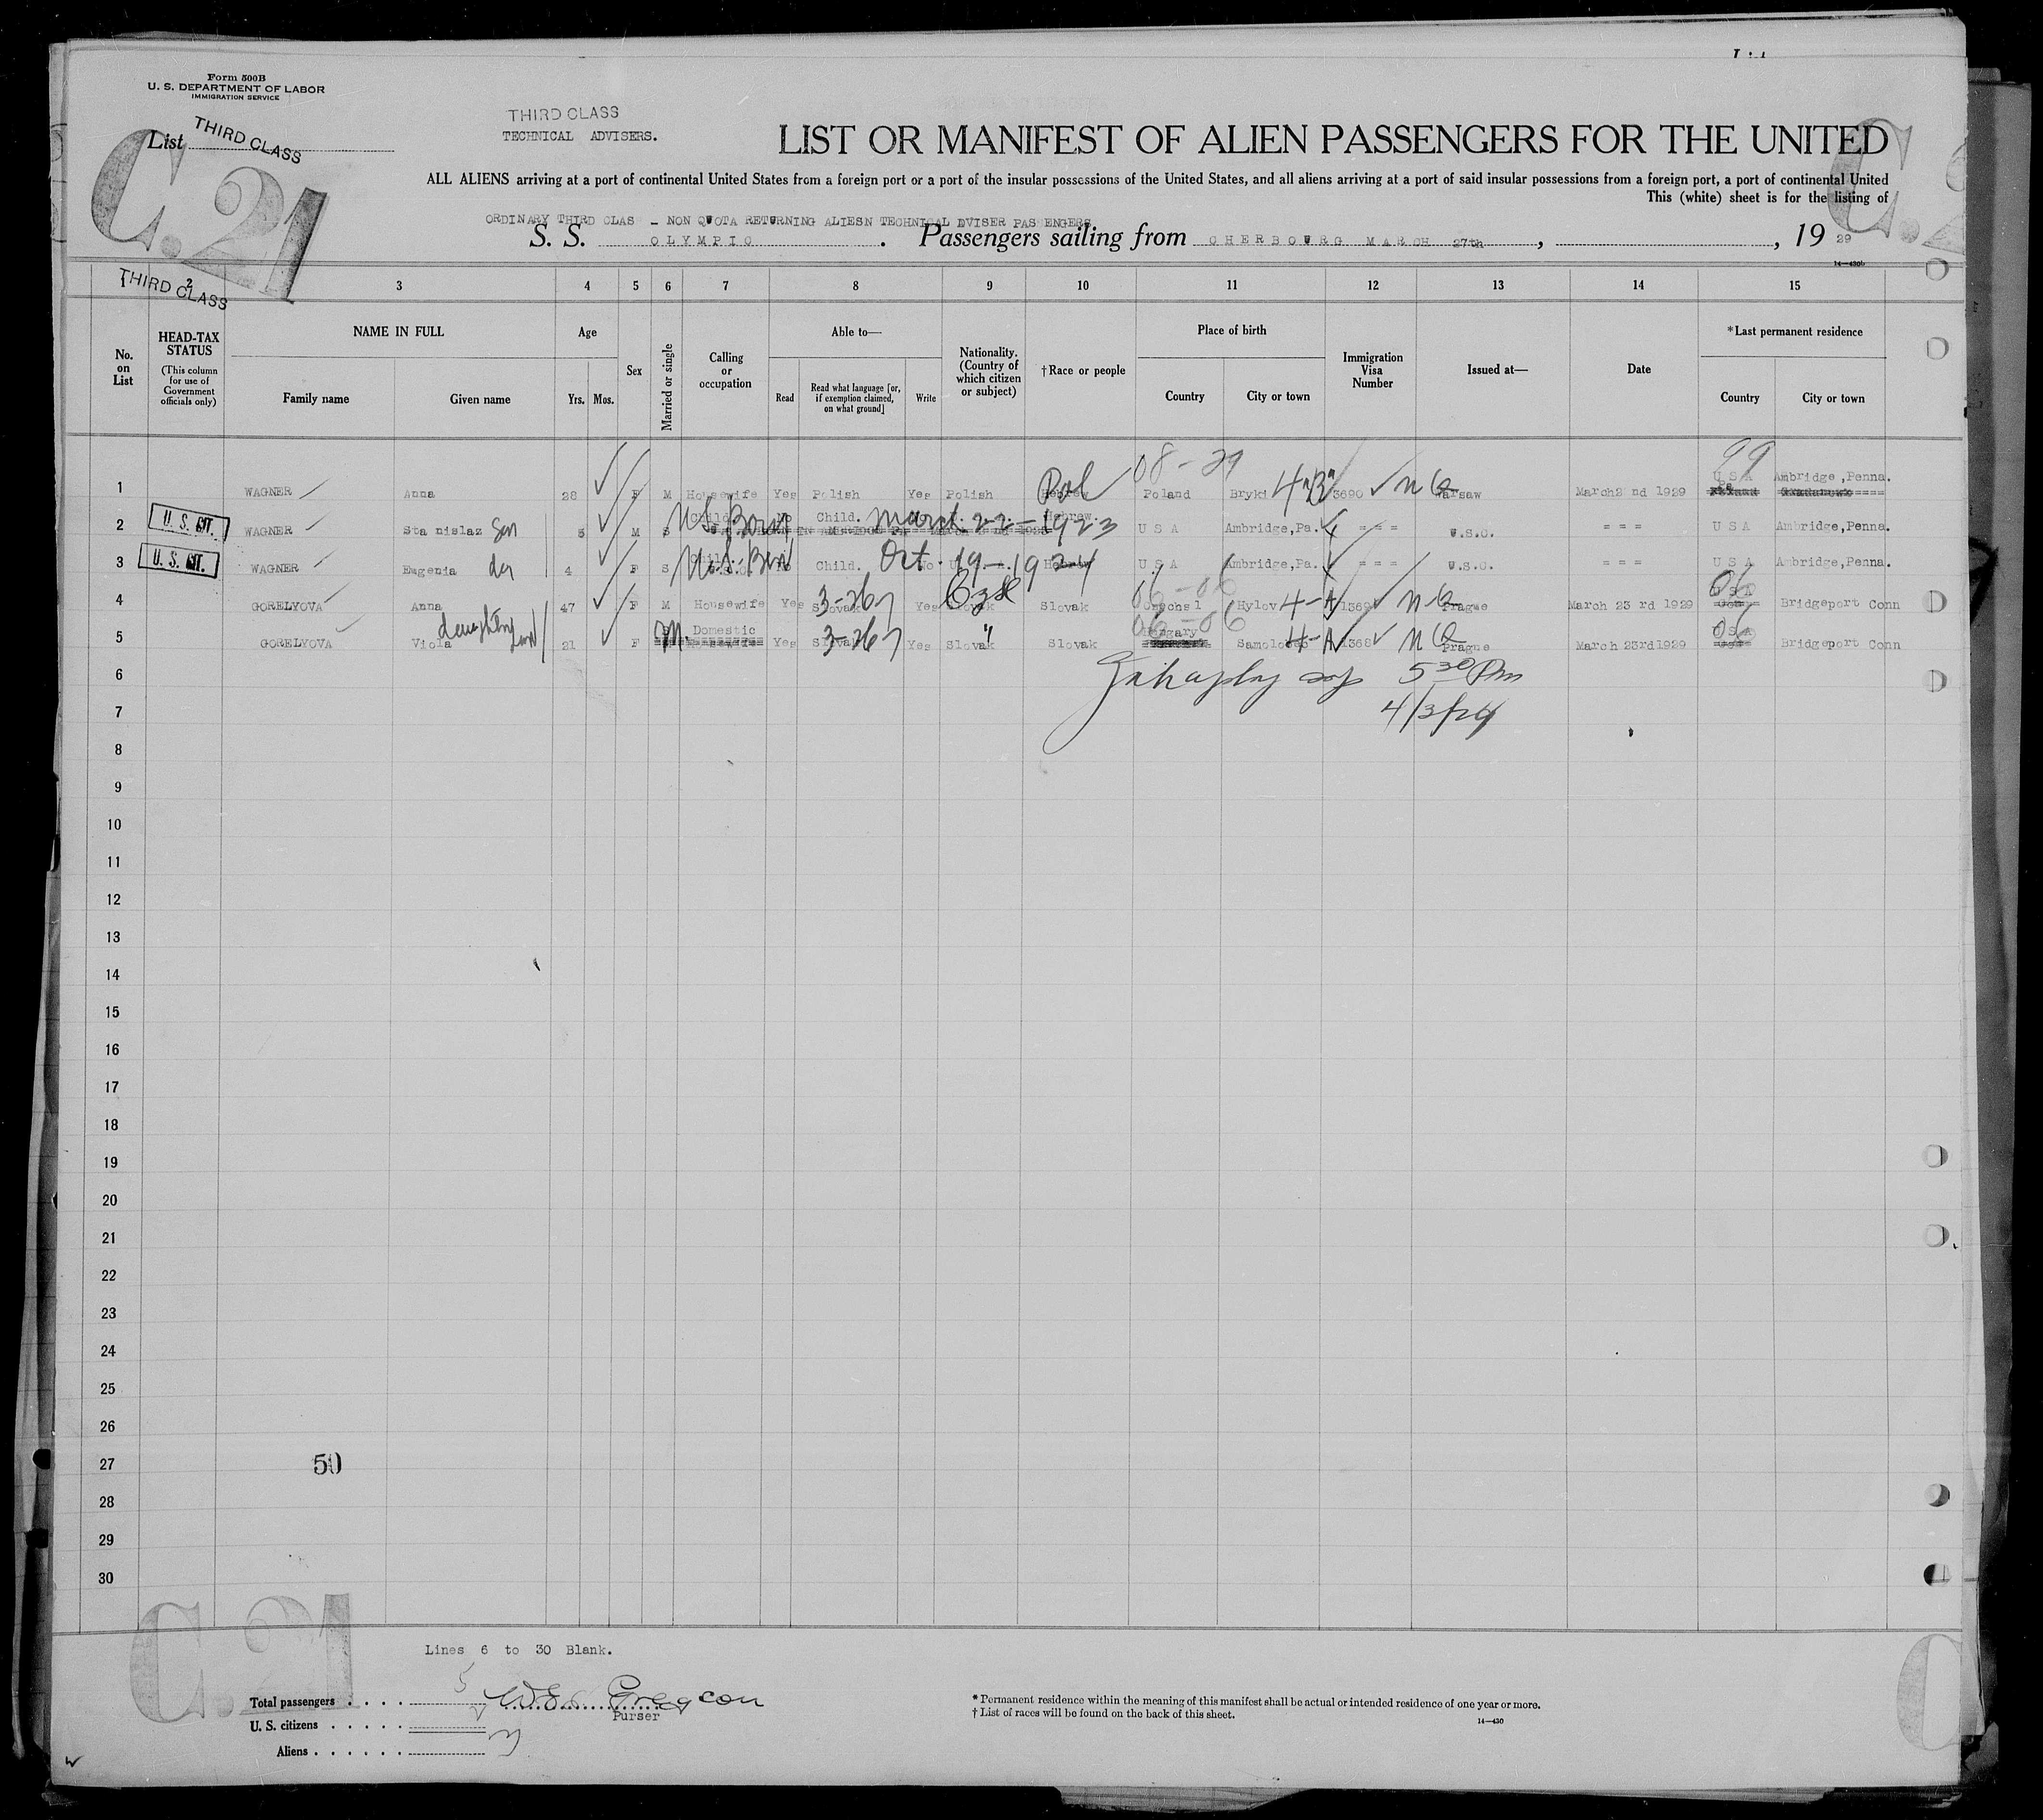 Form 500B
U. S. DEPARTMENT OF LABOR
IMMIGRATION SERVICE
List THIRD CLASS
C.21
THIRD CLASS
TECHNICAL ADVISERS.
LIST OR MANIFEST OF ALIEN PASSENGERS FOR THE UNITED
ALL ALIENS arriving at a port of continental United States from a foreign port or a port of the insular possessions of the United States, and all aliens arriving at a port of said insular possessions from a foreign port, a port of continental United
This (white) sheet is for the listing of
ORDINARY THIRD CLAS - NON QUOTA RETURNING ALIESN TECHNICAL DVISER PAS ENGERS
S. S. OLYMPIC. Passengers sailing from CHERBOURG MARCH 27th, , 19 29
14—430b
THIRD CLASS
1 2 3 4 5 6 7 8 9 10 11 12 13 14 15
No. on List
HEAD-TAX STATUS
(This column for use of Government officials only)
NAME IN FULL
Family name Given name
Age
Yrs. Mos.
Sex
Married or single
Calling or occupation
Able to—
Read
Read what language [or, if exemption claimed, on what ground]
Write
Nationality. (Country of which citizen or subject)
†Race or people
Place of birth
Country City or town
Immigration Visa Number
Issued at—
Date
*Last permanent residence
Country City or town
08-29 99
1 WAGNER Anna 28 F M Housewife Yes Polish Yes Polish Hebrew Pol Poland Bryki 4"B" 3690 NQ Warsaw March2 nd 1929 U S A Ambridge,Penna.
2 U. S. CIT. WAGNER Sta nislaz Son 5 M S Child No Child. U.S. Born March 22-1923 Hebrew. U S A Ambridge,Pa. = = = U.S.C. = = = U S A Ambridge,Penna.
3 U. S. CIT. WAGNER Eugenia 4 F S U.S. Born No Child. Oct. 19-1924 No Hebrew U S A Ambridge,Pa. = = = U.S.C. = = = U S A Ambridge,Penna.
4 GORELYOVA Anna 47 F M Housewife Yes Slovak 3-267 Yes Slovak Slovak 06-06 Hylov 4-A NQ Prague March 23 rd 1929 U S A 06 Bridgeport Conn
5 GORELYOVA Viola daughter 21 F M. Domestic Yes Slovak 3-267 Yes Slovak " Slovak 06-06 Hungary 4-A 1368 NQ Prague March 23rd1929 U S A 06 Bridgeport Conn
6 5 30 Pm
7 4/3/29
8
9
10
11
12
13
14
15
16
17
18
19
20
21
22
23
24
25
26
27 50
28
29
30
C.21
Lines 6 to 30 Blank.
Total passengers . . . . 5
Purser
U. S. citizens . . . . .
Aliens . . . . . .
* Permanent residence within the meaning of this manifest shall be actual or intended residence of one year or more.
† List of races will be found on the back of this sheet.
14—430